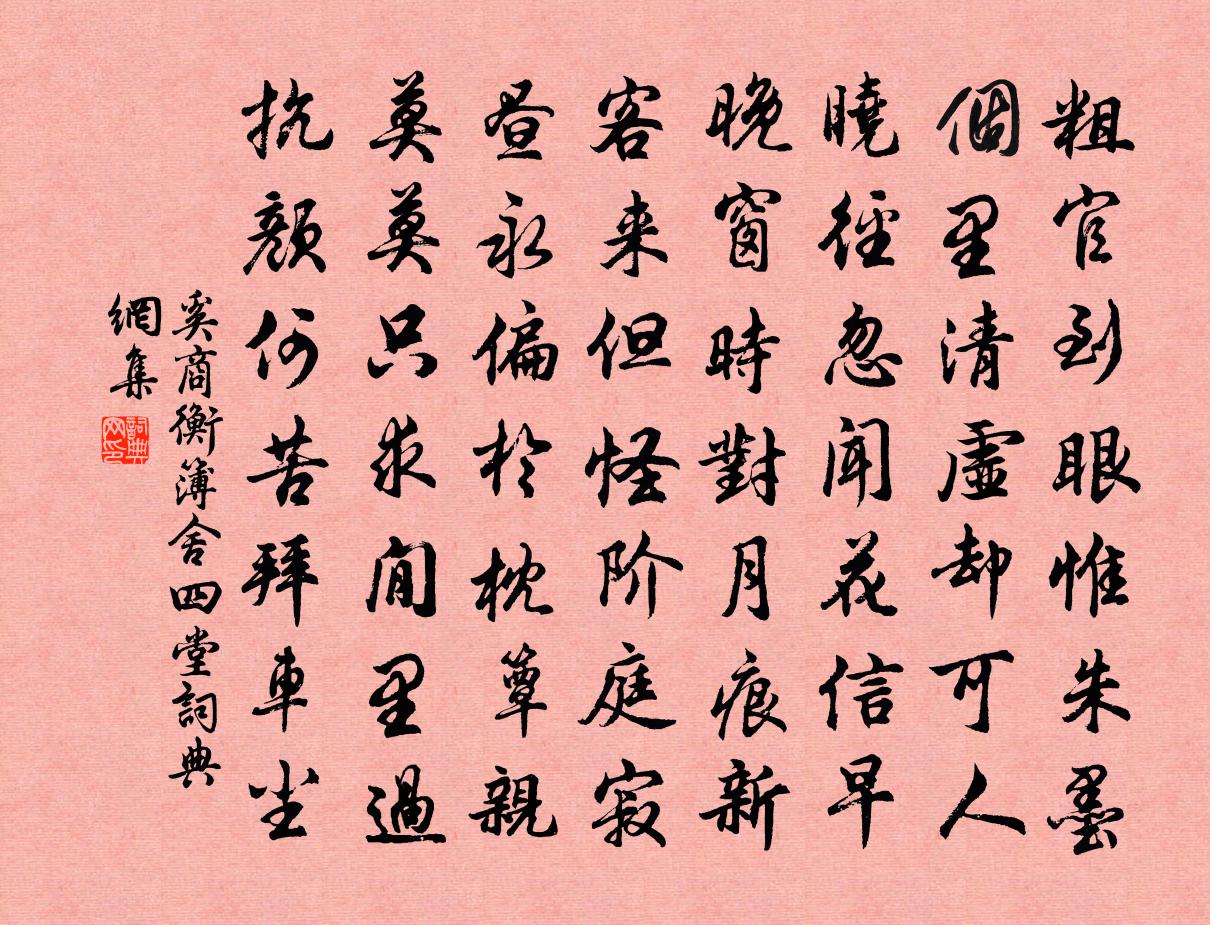 粗官到眼惟朱墨
個里清虛却可人
曉徑忽聞花信早
晚窗時對月痕新
客来但怪阶庭寂
昼永偏於枕簟親
莫莫只求閒里過
抗顏何苦拜車尘
奚商衡簿舍四堂詞典
網集
詞典
网印